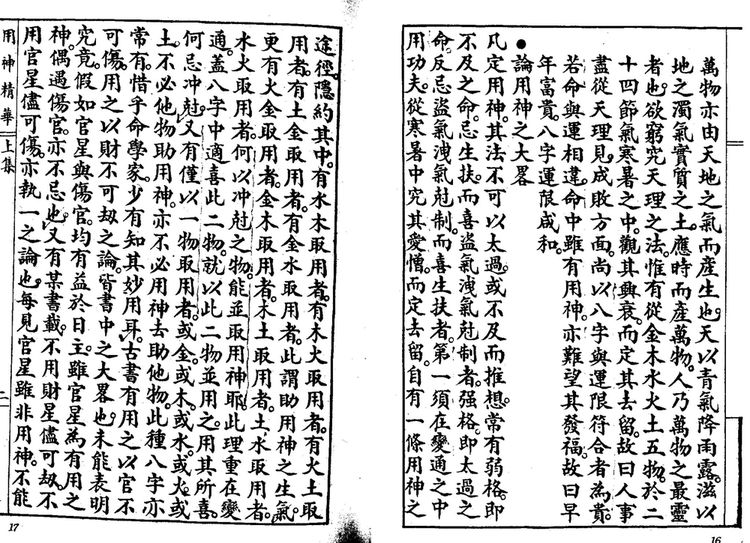 萬物亦由天地之氣而產生也。天以青氣降雨露。滋以
地之濁氣實質之土。應時而產萬物。人乃萬物之最靈
者也。欲窮究天理之法。惟有從金木水火土五物。於二
十四節氣寒暑之中。觀其興衰。而定其去留。故曰人事
盡從天理見。成敗方面。尚以八字與運限符合者為貴。
若命與運相違。命中雖有用神。亦難望其發福。故曰早
年富貴。八字運限咸和。
●論用神之大畧
凡定用神。其法不可以太過。或不及而推想。常有弱格。即
不及之命。忌生扶。而喜盜氣洩氣尅制者。强格即太過之
命。反忌盜氣洩氣尅制。而喜生扶者。第一須在變通之中
用功夫。從寒暑中究其愛憎。而定去留。自有一條用神之
16
途徑。隱約其中。有水木取用者。有木火取用者。有火土取
用者。有土金取用者。有金水取用者。此謂助用神之生氣。
更有火金取用者。金木取用者。木土取用者。土水取用者。
水火取用者。何以冲尅之物。能並取用神耶。此理重在變
通。蓋八字中適喜此二物。就以此二物並用之。用其所喜。
何忌冲尅。又有僅以一物取用者。或金。或木。或水。或火。或
土。不必他物助用神。亦不必用神去助他物。此種八字亦
常有。惜乎命學家。少有知其妙用耳。古書有用之以官不
可傷。用之以財不可刼之論。皆書中之大畧也。未能表明
究竟。假如官星與傷官。均有益於日主。雖官星為有用之
神。偶遇傷官。亦不忌也。又有某書載。不用財星儘可刼。不
用官星儘可傷。亦執一之論也。每見官星雖非用神。不能
用神精華　上集
二
17